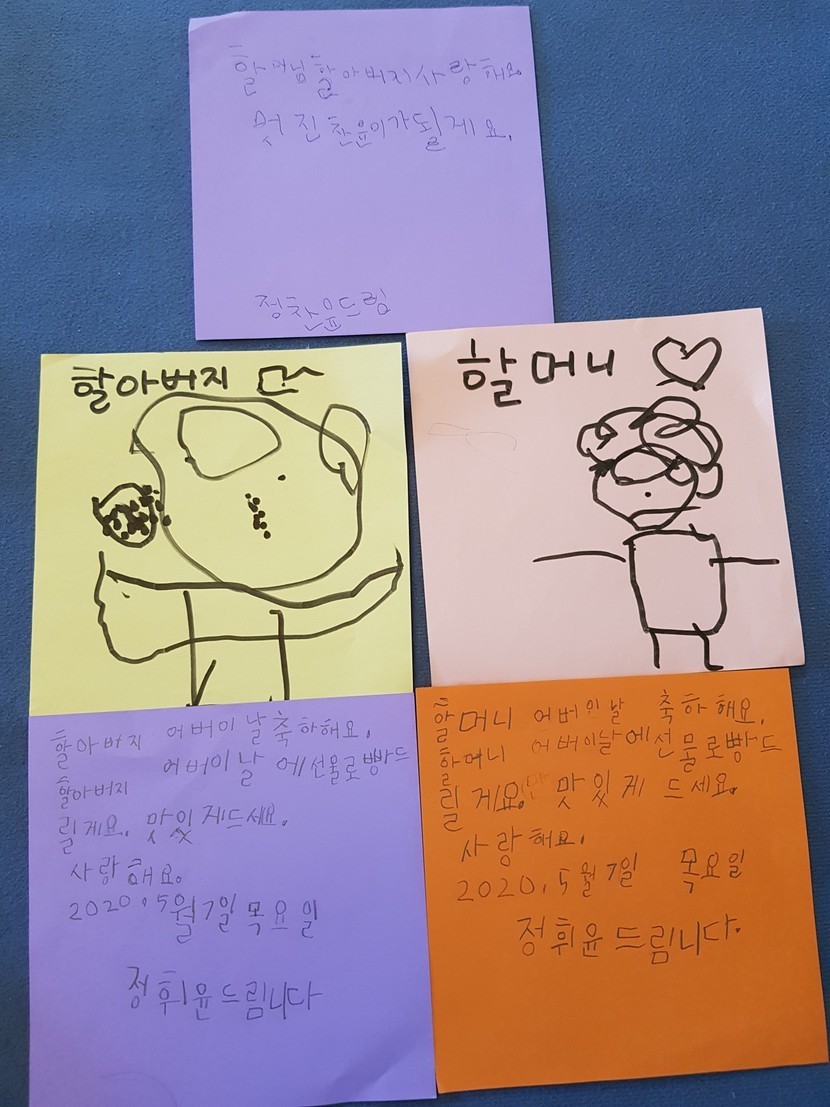 할머님할아버지사랑해요
멋진찬윤이가될게요.
정찬윤드림
할아버지
할머니
할아버지 어버이날축하해요.
할아버지 어버이날에선물로빵드
릴게요. 맛있게드세요.
사랑해요.
2020.5월7일목요일
정휘윤드림니다
할머니 어버인날 축하해요.
할머니 어버이날에선물로빵드
릴게요. 맛있게드세요.
사랑해요.
2020.5월7일 목요일
정휘윤드림니다.